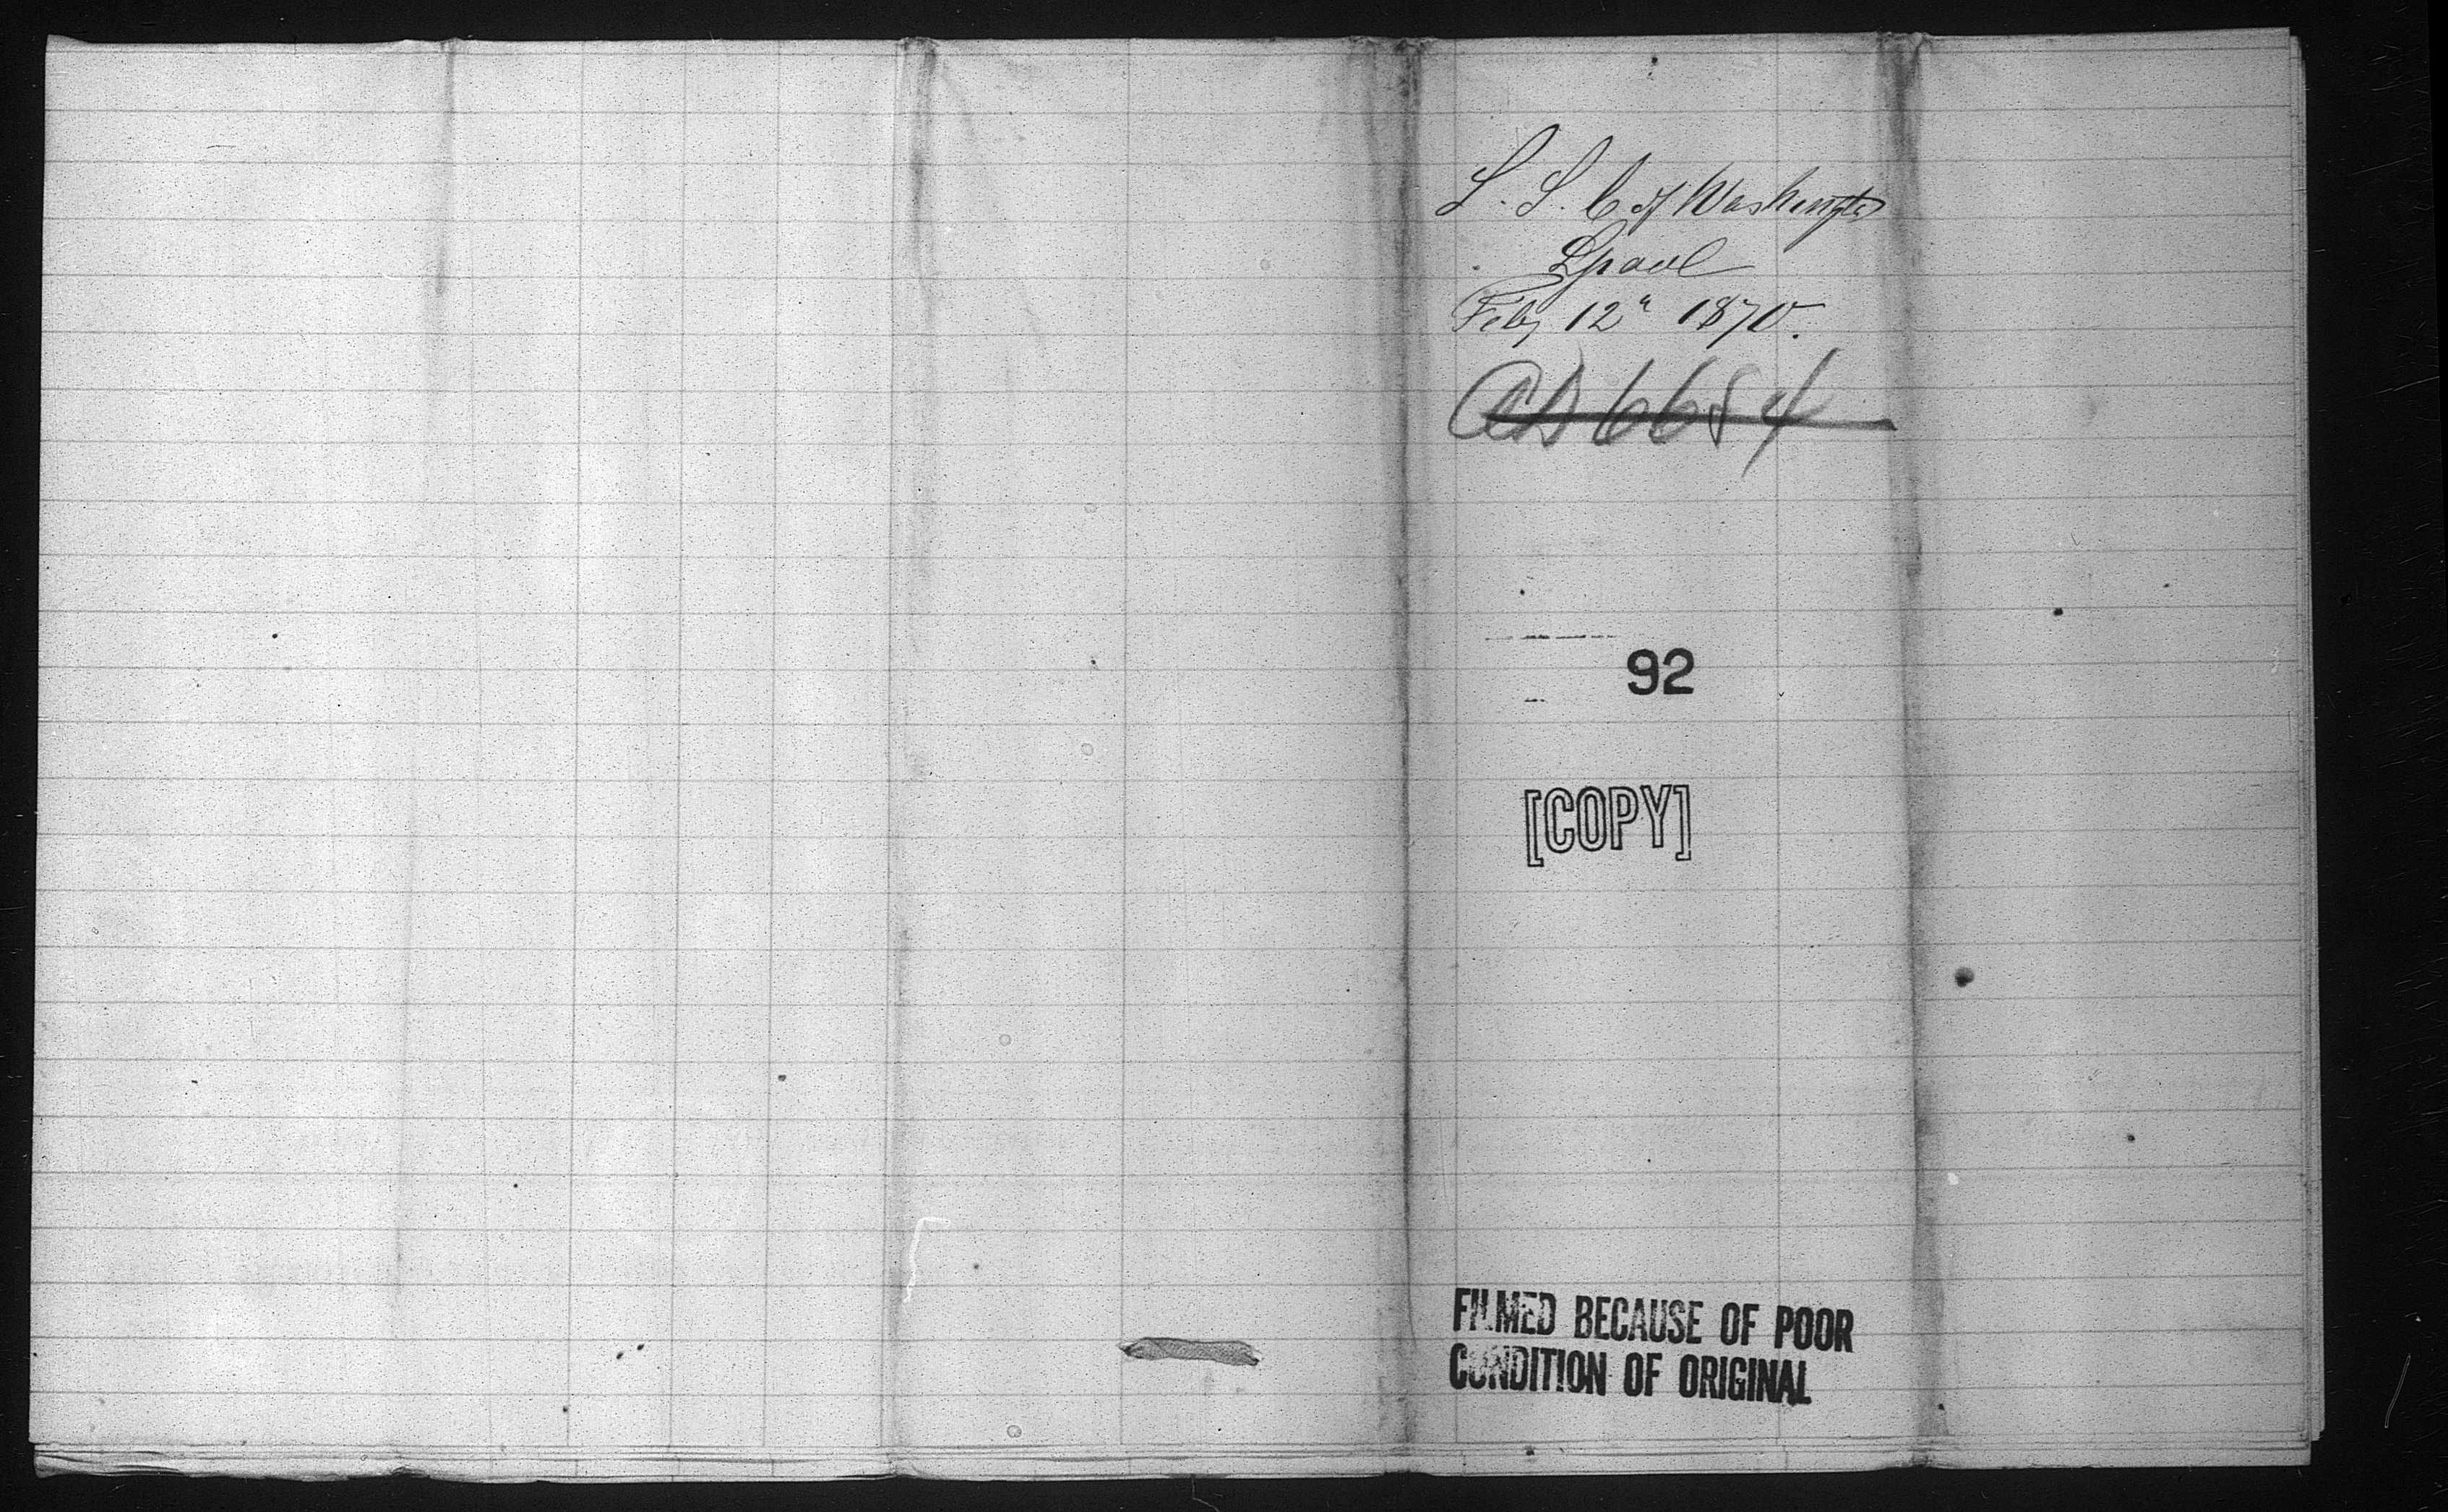 S. S. C of Washington
Lpool
Feby 12" 1870.
92
[COPY]
FILMED BECAUSE OF POOR
CONDITION OF ORIGINAL